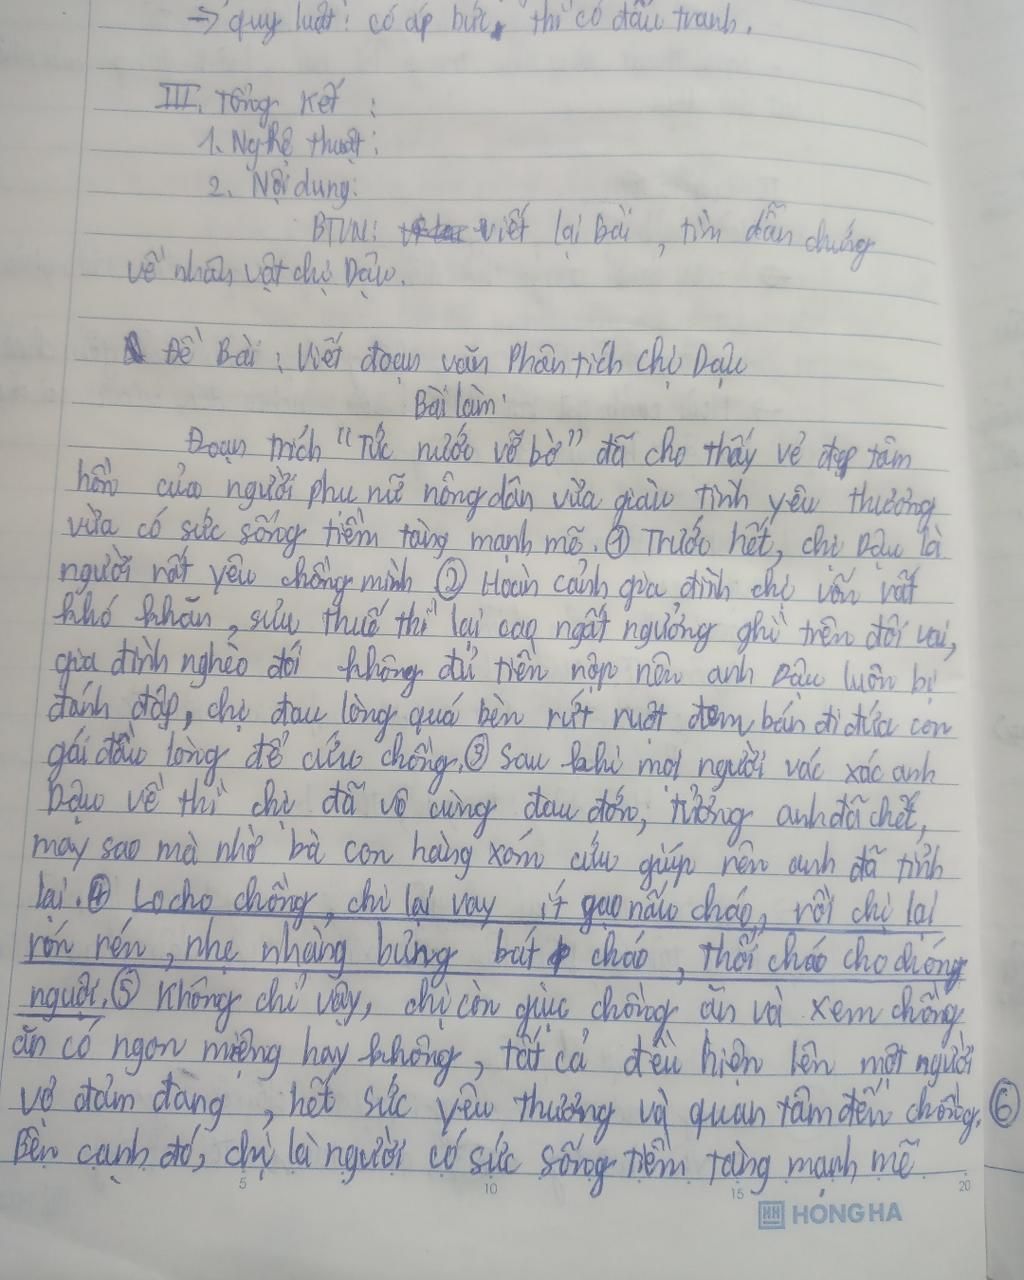 → quy luật: có áp bức, thì có đấu tranh.
III. Tổng kết :
1. Nghệ thuật:
2. Nội dung:
BTVN: viết lại bài, tìm dẫn chứng
về nhân vật chị Dậu.
Đề Bài: Viết đoạn văn Phân tích chị Dậu
Bài làm:
Đoạn trích "Tức nước vỡ bờ" đã cho thấy vẻ đẹp tâm
hồn của người phụ nữ nông dân vừa giàu tình yêu thương
vừa có sức sống tiềm tàng mạnh mẽ. ① Trước hết, chị Dậu là
người rất yêu chồng mình ② Hoàn cảnh gia đình chị vốn vất
khó khăn, sưu thuế thì lại cao ngất ngưởng ghì trên đôi vai,
gia đình nghèo đói không đủ tiền nộp nên anh Dậu luôn bị
đánh đập, chị đau lòng quá bèn rứt ruột đem bán đi đứa con
gái đầu lòng để cứu chồng. ③ Sau khi mọi người vác xác anh
Dậu về thì chị đã vô cùng đau đớn, tưởng anh đã chết,
may sao mà nhờ bà con hàng xóm cứu giúp nên anh đã tỉnh
lại. ④ Lo cho chồng, chị lại vay ít gạo nấu cháo, rồi chị lại
rón rén, nhẹ nhàng bưng bát cháo, thổi cháo cho chóng
nguội. ⑤ Không chỉ vậy, chị còn giục chồng ăn và xem chồng
ăn có ngon miệng hay không, tất cả đều hiện lên một người
vợ đảm đang, hết sức yêu thương và quan tâm đến chồng. ⑥
Bên cạnh đó, chị là người có sức sống tiềm tàng mạnh mẽ
5 10 15 20
HH HỒNG HÀ